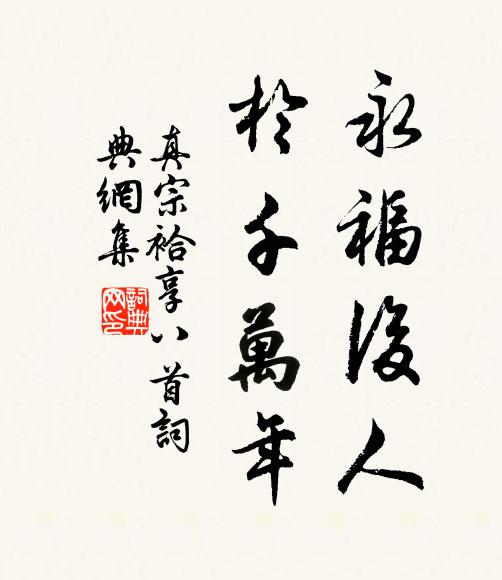 永福後人
於千萬年
真宗祫享八首詞
典網集
詞典
网印